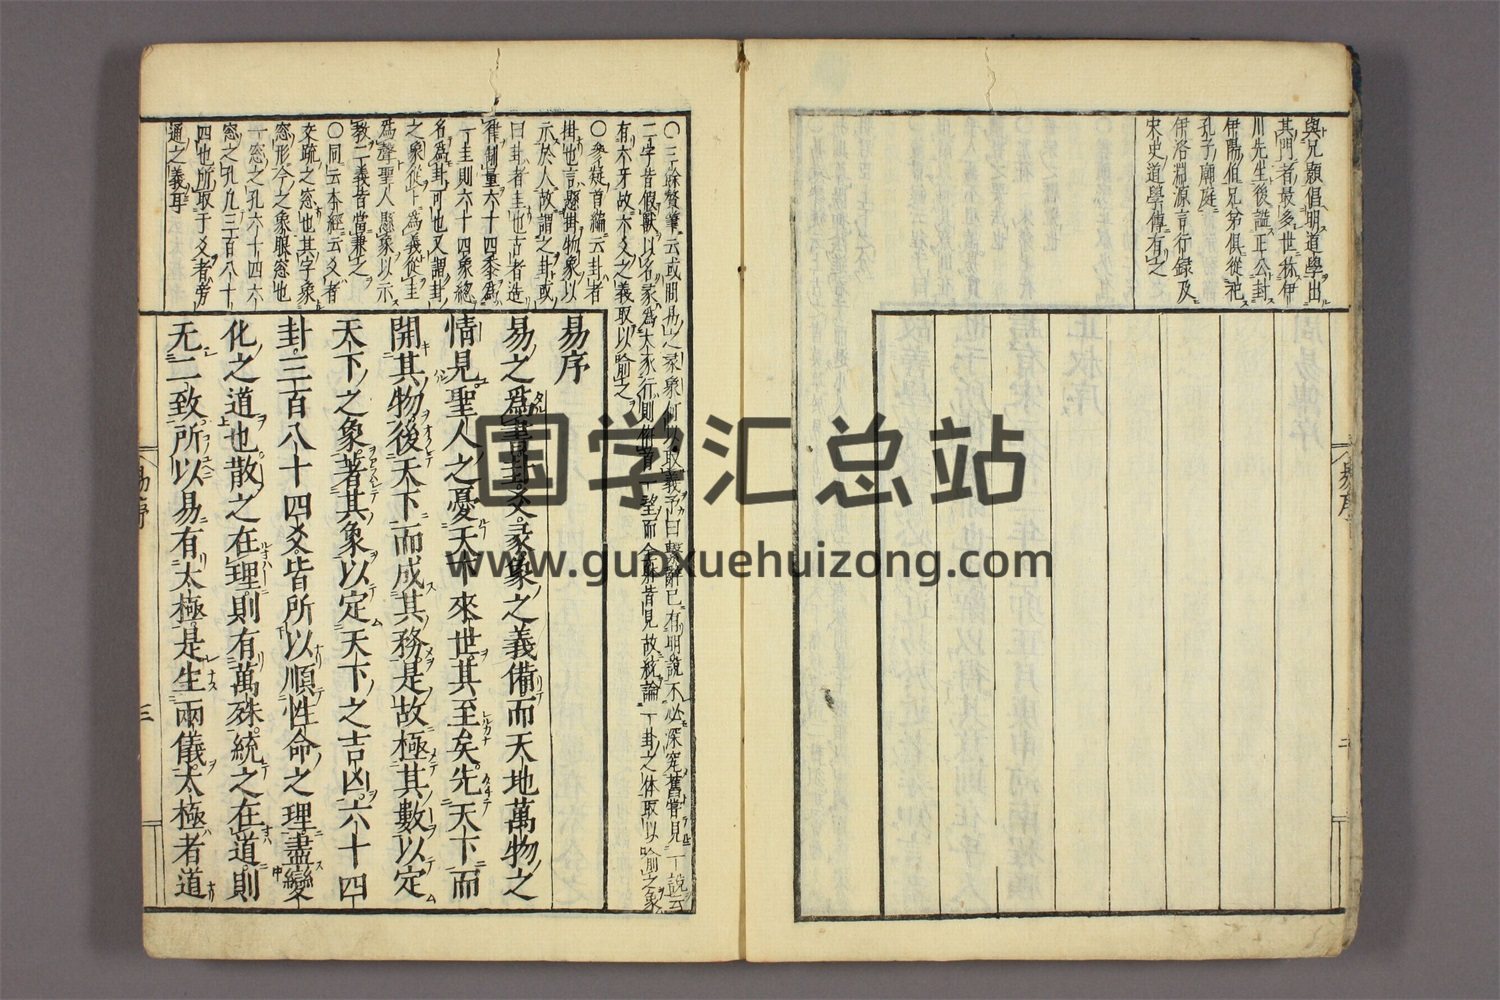 與兄顥倡明道學出
其門者最多世称伊
川先生後謚正公封
伊陽伯兄弟俱從祀
孔子廟庭
伊洛淵源言行録及
宋史道學傳有之
易序
有不牙故六爻之義取以喻之
〇參疑首編云卦者
掛也言懸掛物象以
示於人故謂之卦或
曰卦者圭也古者造
律制量六十四黍為
一圭則六十四象總
名為卦可也又謂卦
之象從卜為義從圭
為聲聖人懸象以示
教二義皆當兼之
〇同云本經云爻者
交疏之窓也其字象
窓形今之象眼窓也
一窓之孔六十四六
窓之孔凡三百八十
四也所取于爻者旁
通之義耳
易序
易之爲書卦爻彖象之義備而天地萬物之
情見聖人之憂天下來世其至矣先天下而
開其物後天下而成其務是故極其數以定
天下之象著其象以定天下之吉凶六十四
卦三百八十四爻皆所以順性命之理盡變
化之道也散之在理則有萬殊統之在道則
无二致所以易有太極是生兩儀太極者道
易序
三
国学汇总站
www.guoxuehuizong.com